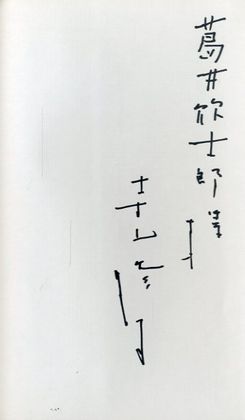 葛井欣士郎様
寺山修司